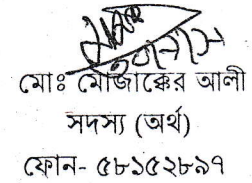 মোঃ মোজাক্কের আলী
সদস্য (অর্থ)
ফোন- ৫৮১৫২৮৯৭